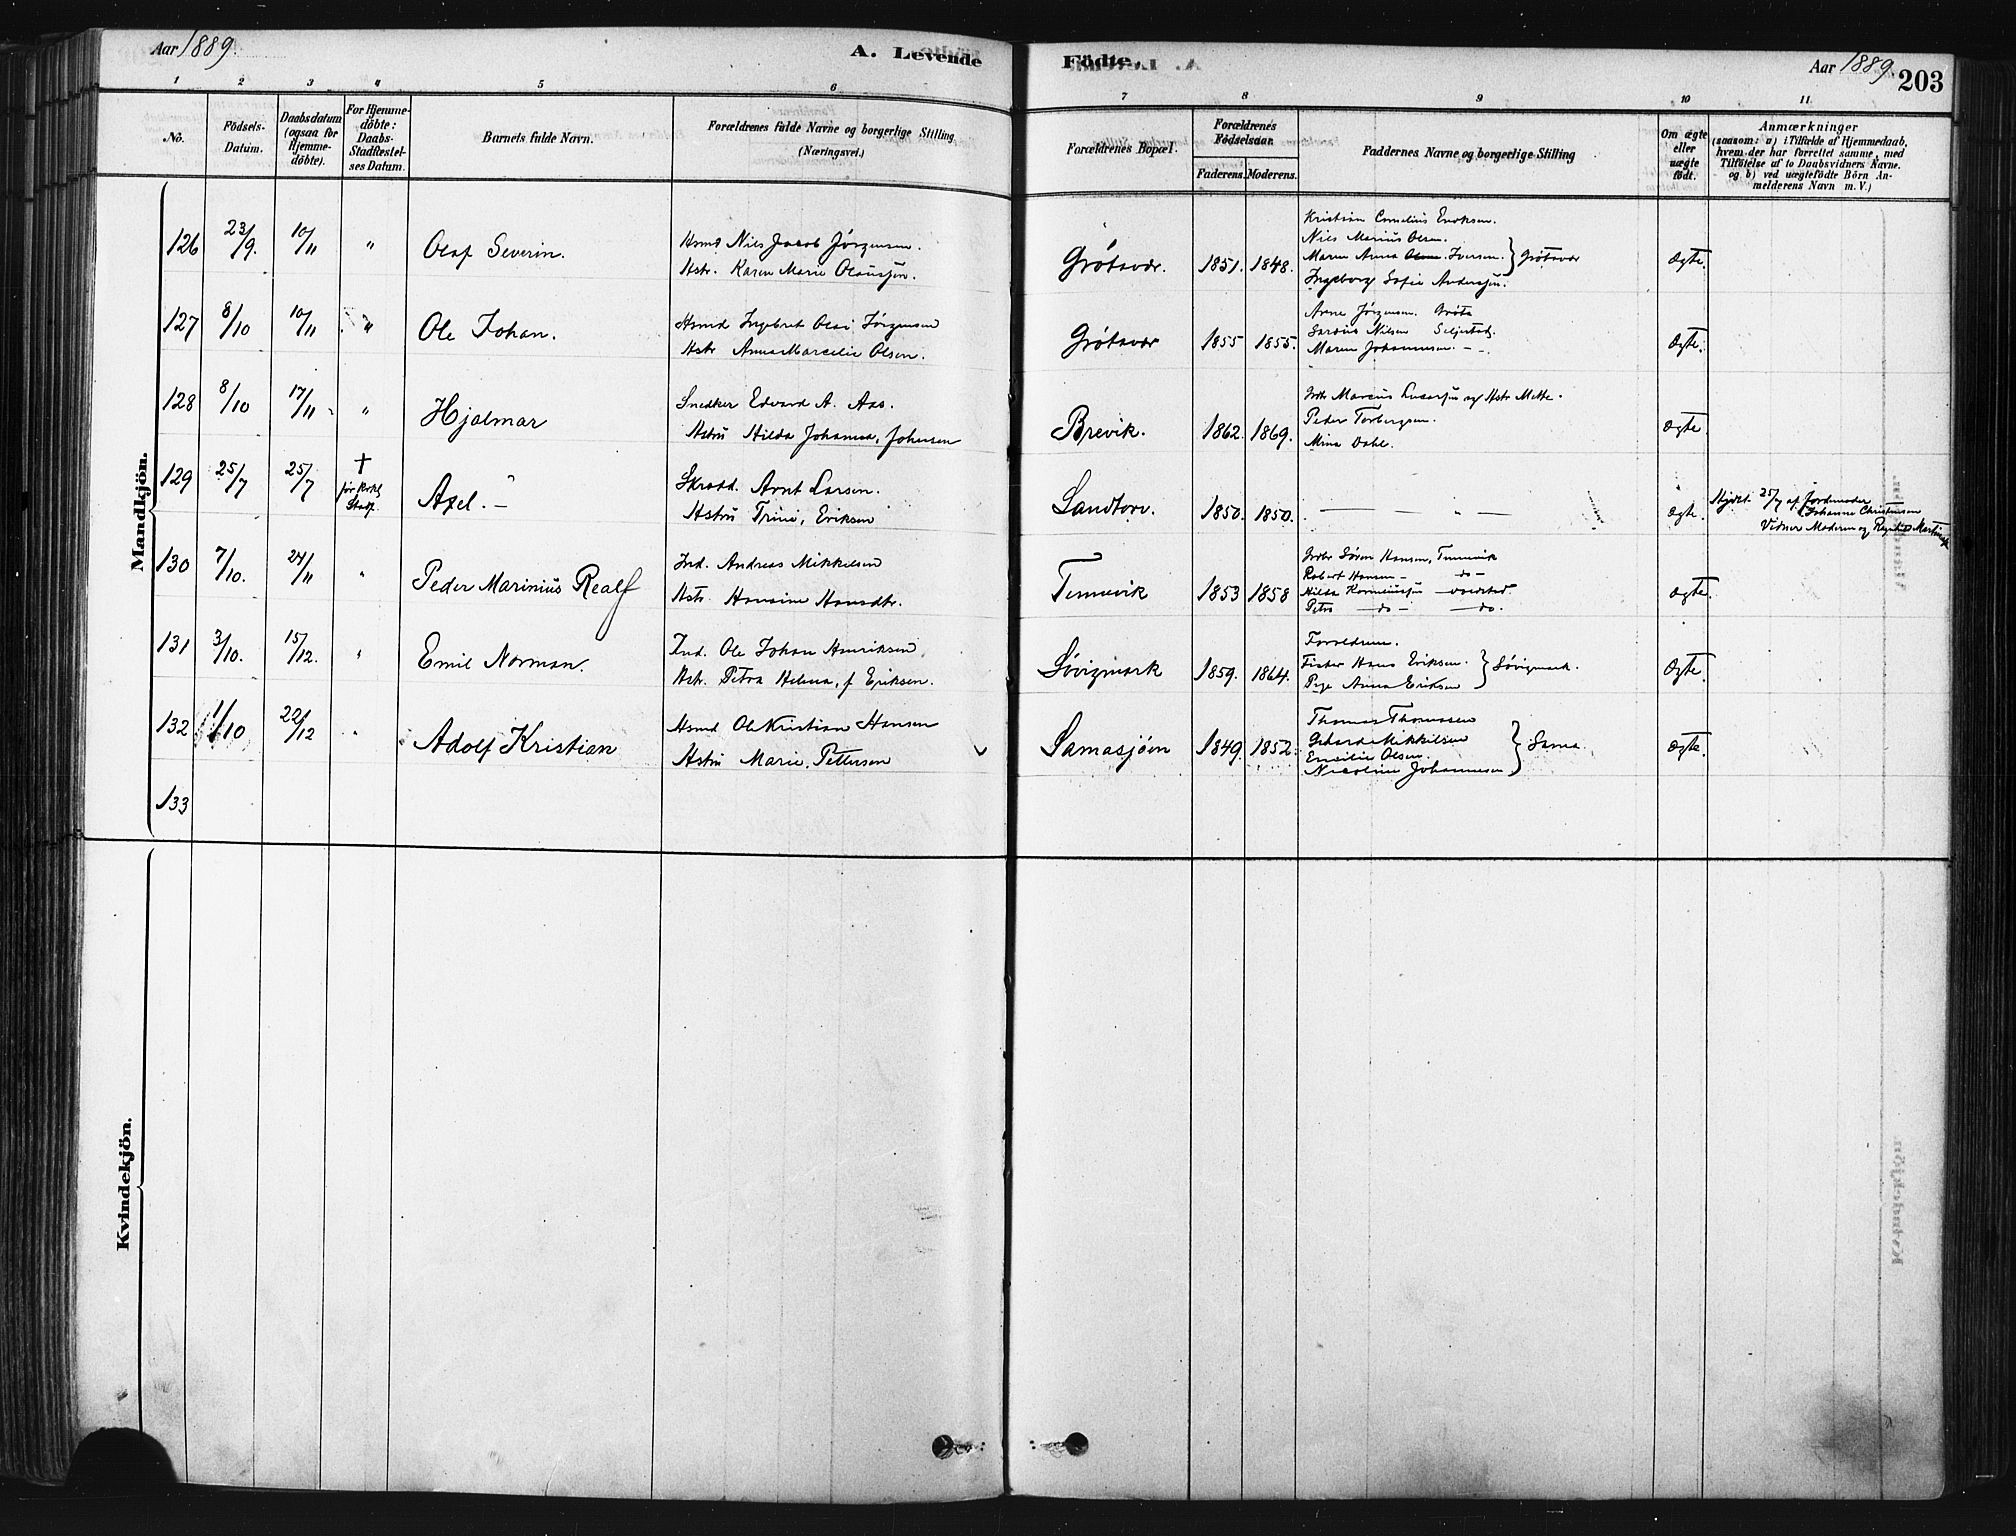 Aar 1889.
A. Levende
Födte.
Aar 1889.
203
1 2 3 4 5 6 7 8 9 10 11
No.
Födsels-Datum.
Daabsdatum (ogsaa for Hjemme-döbte).
For Hjemme-döbte: Daabs-Stadfæstel-ses Datum.
Barnets fulde Navn.
Forældrenes fulde Navne og borgerlige Stilling.
(Næringsvei.)
Forældrenes Bopæl.
Forældrenes Födselsaar.
Faderens. Moderens.
Faddernes Navne og borgerlige Stilling
Om ægte eller uægte födt.
Anmærkninger
(saasom: a) i Tilfælde af Hjemmedaab,
hvem der har forrettet samme, med
Tilföielse af to Daabsvidners Navne.
og b) ved uægtefödte Börn An-
melderens Navn m. V.)
Mandkjön.
126 23/9. 10/11 " Olaf Severin.
Hsmd Nils Jacob Jörgensen.
Hstr. Karen Marie Olausen.
Grötavær. 1851. 1848.
Kristian Cornelius Enoksen.
Nils Marius Olsen.
Maren Anna Iversen. } Grötavær
Ingeborg Sofie Andersen.
ægte.
127 8/10 10/11 " Ole Johan.
Hsmd Ingebret Olai Jörgensen
Hstr Anna Marcelie Olsen.
Grötavær 1855 1855.
Arne Jörgensen. Gröta
Nilsen Seljestad.
Maren Johannesen. — - .
ægte.
128 8/10 17/11 " Hjalmar
Snedker Edvard A. Aas.
Hstru Hilda Johanna, Johnsen
Brevik. 1862. 1869.
Marcus og Hstr Mette.
Peder Torbergsen.
Mina Dahl.
ægte
129 25/7 25/7 † før Stadf. Axel. -
Skrædd. Arnt Larsen.
Hstru Trine, Eriksen
Sandtorv. 1850. 1850. — " —
ægte.
Hjdbt. 25/7 af Jordemoder
Johanne Christensen
Vidner Moderen og
130 7/10. 24/11 " Peder Marinius Realf
Ind. Andreas Mikkelsen
Hstr. Hansine Hansdtr.
Tennevik 1853 1858
Gbr Sören Hansen, Tennevik
Robert Hansen — do —
Hilda
Petra — do — — do.
ægte.
131 3/10. 15/12. " Emil Norman.
Ind. Ole Johan Henriksen
Hstr. Petra Helena, f Eriksen.
Sövigmark 1859. 1864.
Forældrene.
Fisker Hans Eriksen. } Sövigmark.
Pige Anna Eriksen
ægte.
132 1/10 22/12 " Adolf Kristian
Hsmd Ole Kristian Hansen
Hstru Marie, Pettersen
Samasjöen 1849. 1852.
Thomas Thomassen
Gerhard Mikkelsen
Emilie Olsen. } Sama
Nicoline Johannesen
ægte.
133
Kvindekjön.